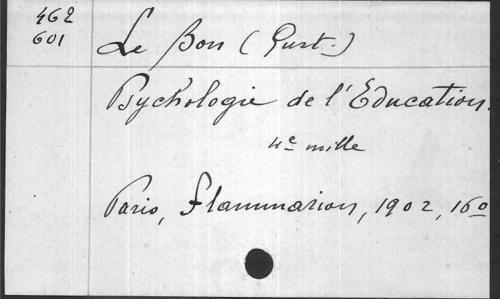 462
601
Le Bon (Gust.)
Psychologie de l'Education.
4e mille
Paris, Flammarion, 1902, 16º